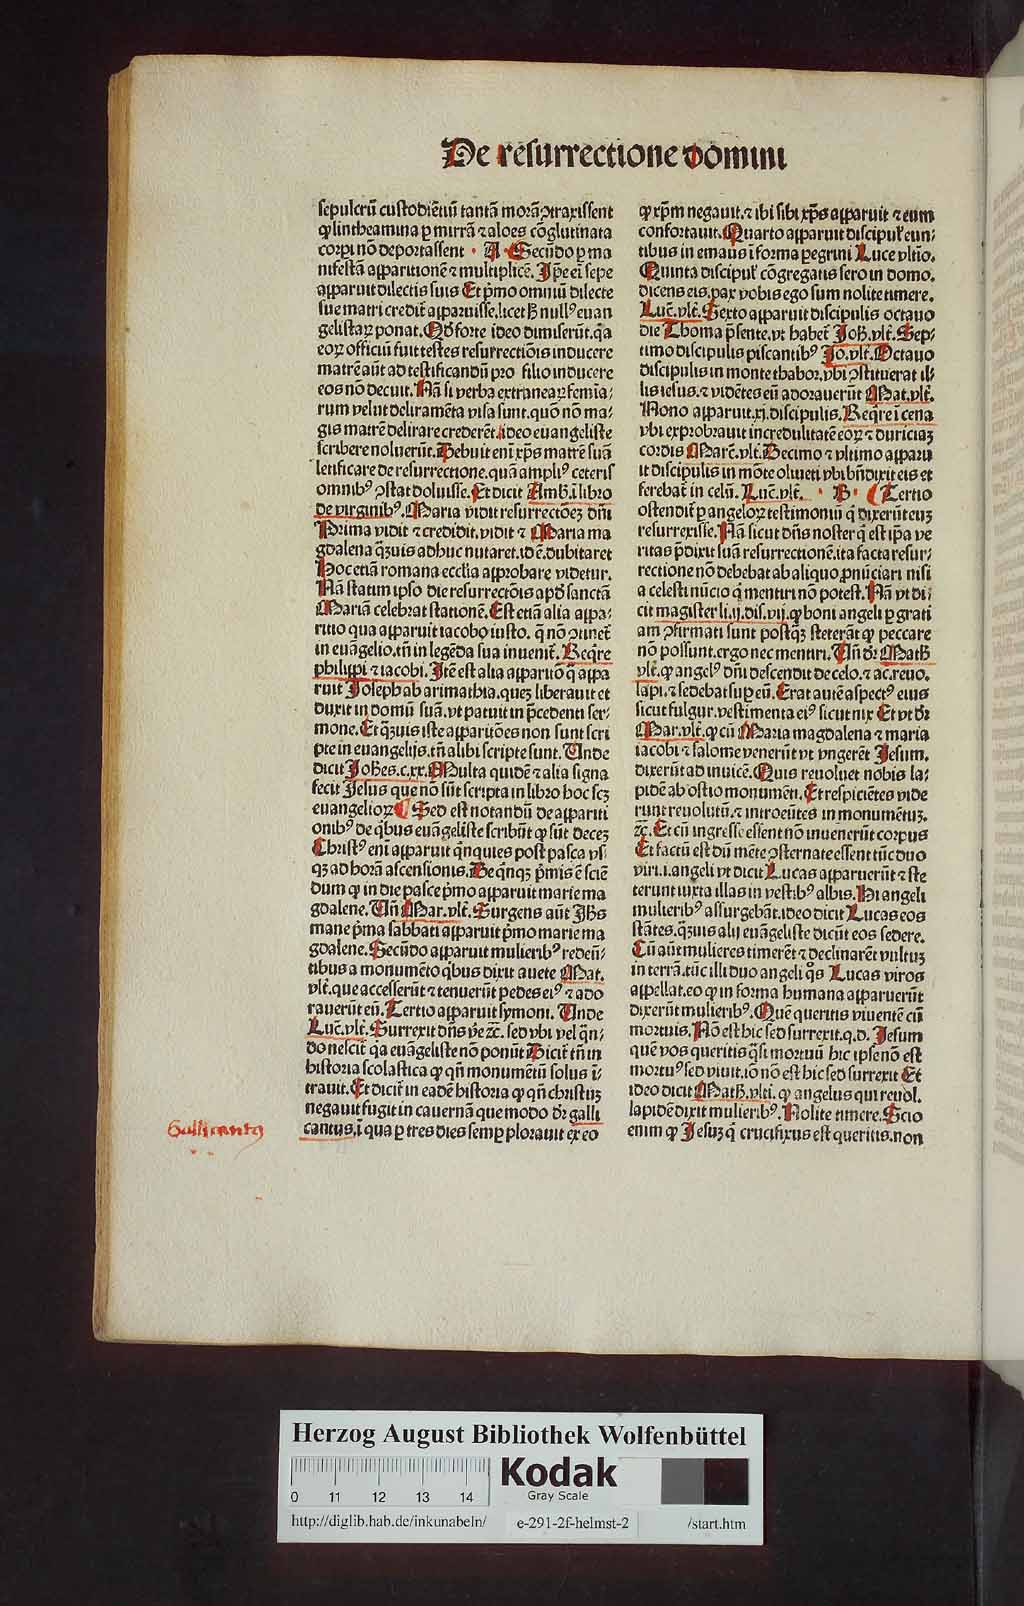 De resurrectione domini
sepulcrū custodiētiū tantā morā ↄtraxissent
ꝙ lintheamina ꝑ mirrā ⁊ aloes cōglutinata
corpi nō deportassent · A · Secūdo ꝑ ma
nifestā apparitionē ⁊ multiplicē. Ip̄e ei̅ sepe
apparuit dilectis suis Et p̄mo omniū dilecte
sue matri credit̄ apparuisse. licet hͦ null⁹ euan
gelistaꝝ ponat. Qd̓ forte ideo dimiserūt. q̄a
eoꝝ officiū fuit testes resurrectiōis inducere
matrē aūt ad testificandū pro filio inducere
eos nō decuit. Nā si verba extranearꝝ femīa⸗
rum velut deliramēta visa sunt. quō nō ma⸗
gis matrē delirare crederēt. ideo euangeliste
scribere noluerūt. Debuit eni̅ xp̄s matrē suā
letificare de resurrectione. quā ampli⁹ ceteris
omnib⁹ ↄstat doluisse. Et dicit Amb̄. i libro
de virginib⁹. Maria vidit resurrectōeꝫ dn̄i
Prima vidit ⁊ credidit. vidit ⁊ Maria ma
gdalena q̄ꝫuis adhuc nutaret. id ē. dubitaret
Hoc etiā romana ecclīa approbare videtur.
Nā statim ipso die resurrectōis apd̓ sanctā
Mariā celebrat stationē. Est etiā alia appa⸗
ritio qua apparuit iacobo iusto. q̄ nō ↄtinet̄
in euāgelio. tn̄ in legēda sua inuenit̄. Reqͥre
philippi ⁊ iacobi. Itē est alia apparitio q̄ appa
ruit Joseph ab arimathia. queꝫ liberauit et
duxit in domū suā. vt patuit in p̄cedenti ser⸗
mone. Et q̄ꝫuis iste apparitōes non sunt scri
pte in euangelijs. tn̄ alibi scripte sunt. Unde
dicit Johes. c. xx. Multa quidē ⁊ alia signa
fecit Jesus que nō sūt scripta in libro hoc scꝫ
euangelioꝝ ¶ Sed est notandū de appariti
onib⁹ de qͥbus euāgeliste scribūt ꝙ sūt deceꝫ
Christ⁹ eni̅ apparuit qͥnquies post pasca vs⸗
qꝫ ad horā ascensionis. De qͥnqꝫ p̄mis ē sciē
dum ꝙ in die pasce p̄mo apparuit marie ma
gdalene. Un̄ Mar. vlt̄. Surgens aūt Jhs
mane p̄ma sabbati apparuit p̄mo marie ma
gdalene. Secūdo apparuit mulierib⁹ redeū⸗
tibus a monumēto qͥbus dixit auete Mat.
vlt̄. que accesserūt ⁊ tenuerūt pedes ei⁹ ⁊ ado
rauerūt eū. Tertio apparuit symoni. Unde
Luc̄. vlt̄. Surrexit dn̄s ve̅ ⁊c̄. sed vbi vel qn̄⸗
do nescit̄ q̄a euāgeliste nō ponūt Dicit̄ tn̄ in
historia scolastica ꝙ qn̄ monumētū solus ī⸗
trauit. Et dicit̄ in eadē historia ꝙ qn̄ christuꝫ
negauit fugit in cauernā que modo dr̄ galli
cantus. i qua ꝑ tres dies semꝑ plorauit ex eo
Gallicantꝯ
ꝙ xp̄m negauit. ⁊ ibi sibi xp̄s apparuit ⁊ eum
confortauit. Quarto apparuit discipul̓ eun⸗
tibus in emaus i forma peregrini Luce vltīo.
Quinta discipul̓ cōgregatis sero in domo.
dicens eis. pax vobis ego sum nolite timere.
Luc̄. vlt̄. Sexto apparuit discipulis octauo
die Thoma p̄sente. vt habet̄ Joh̄. vlt̄. Sep⸗
timo discipulis piscantib⁹ Jo. vlt̄. Octauo
discipulis in monte thabor. vbi ↄstituerat il⸗
lis iesus. ⁊ vidētes eū adorauerūt Mat. vlt̄.
Nono apparuit. xj. discipulis. Reqͥre i cena
vbi exprobrauit incredulitatē eoꝝ ⁊ duriciaꝫ
cordis Marc̄. vlt̄. Decimo ⁊ vltimo apparu
it discipulis in mōte oliueti vbi bn̄dixit eis et
ferebat̄ in celū. Luc̄. vlt̄. · B · ¶ Tertio
ostendit̄ ꝑ angeloꝝ testimoniū q̄ dixerūt euꝫ
resurrexisse. Nā sicut dn̄s noster q̄ est ip̄a ve
ritas p̄dixit suā resurrectionē. ita facta resur⸗
rectione nō debebat ab aliquo ꝓnūciari nisi
a celesti nūcio q̄ mentiri nō potest. Nā vt di⸗
cit magister li. ij. dis. vij. ꝙ boni angeli ꝑ grati
am ↄfirmati sunt postqͣꝫ steterāt ꝙ peccare
nō possunt. ergo nec mentiri. Un̄ dr̄ Math̄
vlt̄. ꝙ angel⁹ dn̄i descendit de celo. ⁊ ac. reuo.
lapi. ⁊ sedebat suꝑ eū. Erat autē aspect⁹ eius
sicut fulgur. vestimenta ei⁹ sicut nix Et vt dr̄
Mar. vlt̄. ꝙ cū Maria magdalena ⁊ maria
iacobi ⁊ salome venerūt vt vngerēt Jesum.
dixerūt ad inuicē. Quis reuoluet nobis la⸗
pidē ab ostio monumēti. Et respiciētes vide
runt reuolutū. ⁊ introeūtes in monumētuꝫ.
⁊c̄. Et cū ingresse essent nō inuenerūt corpus
Et factū est dū mēte ↄsternate essent tūc duo
viri. i. angeli vt dicit Lucas apparuerūt ⁊ ste
terunt iuxta illas in vestib⁹ albis. Hi angeli
mulierib⁹ assurgebāt. ideo dicit Lucas eos
stātes. q̄ꝫuis alij euāgeliste dicūt eos sedere.
Cū aūt mulieres timerēt ⁊ declinarēt vultuꝫ
in terrā. tūc illi duo angeli qͦs Lucas viros
appellat. eo ꝙ in forma humana apparuerūt
dixerūt mulierib⁹. Quē queritis viuentē cū
mortuis. Nō est hic sed surrexit. q. d. Jesum
quē vos queritis qͣsi mortuū hic ipse nō est
mortu⁹ sed viuit. iō nō est hic sed surrexit Et
ideo dicit Math̄. vlti. ꝙ angelus qui reuol.
lapidē dixit mulierib⁹. Nolite timere. Scio
enim ꝙ Jesuꝫ q̄ crucifixus est queritis. non
Herzog August Bibliothek Wolfenbüttel
0 11 12 13 14
Kodak
Gray Scale
http://diglib.hab.de/inkunabeln/ e-291-2f-helmst-2 /start.htm